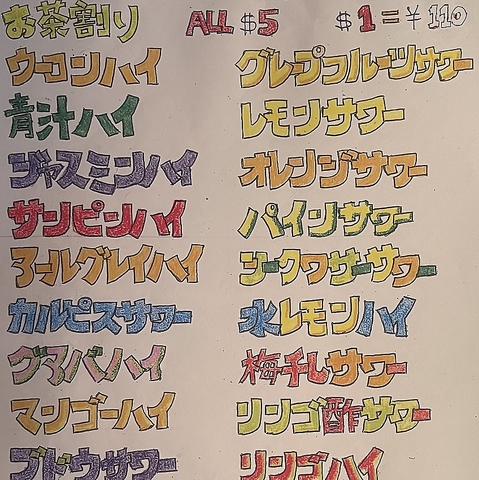 お茶割り ALL $5 $1=¥110
ウーロンハイ
青汁ハイ
ジャスミンハイ
サンピンハイ
アールグレイハイ
カルピスサワー
グァバハイ
マンゴーハイ
ブドウサワー
グレープフルーツサワー
レモンサワー
オレンジサワー
パインサワー
シークワサーサワー
水レモンハイ
梅干しサワー
リンゴ酢サワー
リンゴハイ